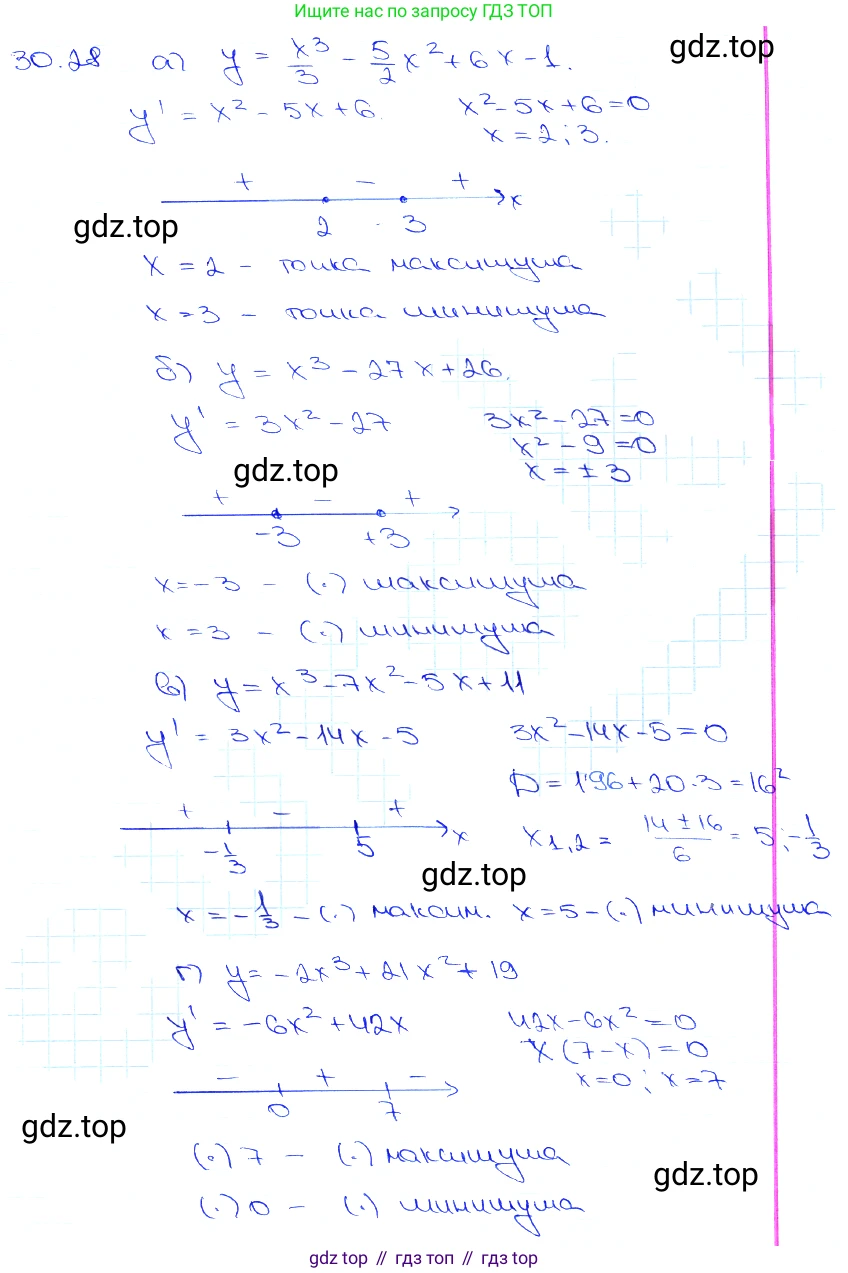 Ищите нас по запросу ГДЗ ТОП
30.28 а) y = x³/3 - 5/2 x² + 6x - 1.
gdz.top
y' = x² - 5x + 6. x² - 5x + 6 = 0
x = 2; 3.
+ - + x
gdz.top 2 3
x = 2 - точка максимума
x = 3 - точка минимума
gdz.top
б) y = x³ - 27x + 26.
y' = 3x² - 27 3x² - 27 = 0
x² - 9 = 0
gdz.top x = ± 3
+ - +
-3 +3
x = -3 - (.) максимума
x = 3 - (.) минимума
в) y = x³ - 7x² - 5x + 11
y' = 3x² - 14x - 5 3x² - 14x - 5 = 0
D = 196 + 20·3 = 16²
+ - + x x1,2 = (14 ± 16)/6 = 5; -1/3
-1/3 5
gdz.top
x = -1/3 - (.) максим. x = 5 - (.) минимума
г) y = -2x³ + 21x² + 19
y' = -6x² + 42x 42x - 6x² = 0
x(7 - x) = 0
- + - x = 0; x = 7
0 7
gdz.top
(.) 7 - (.) максимума
gdz.top
(.) 0 - (.) минимума
gdz top // гдз топ // gdz top